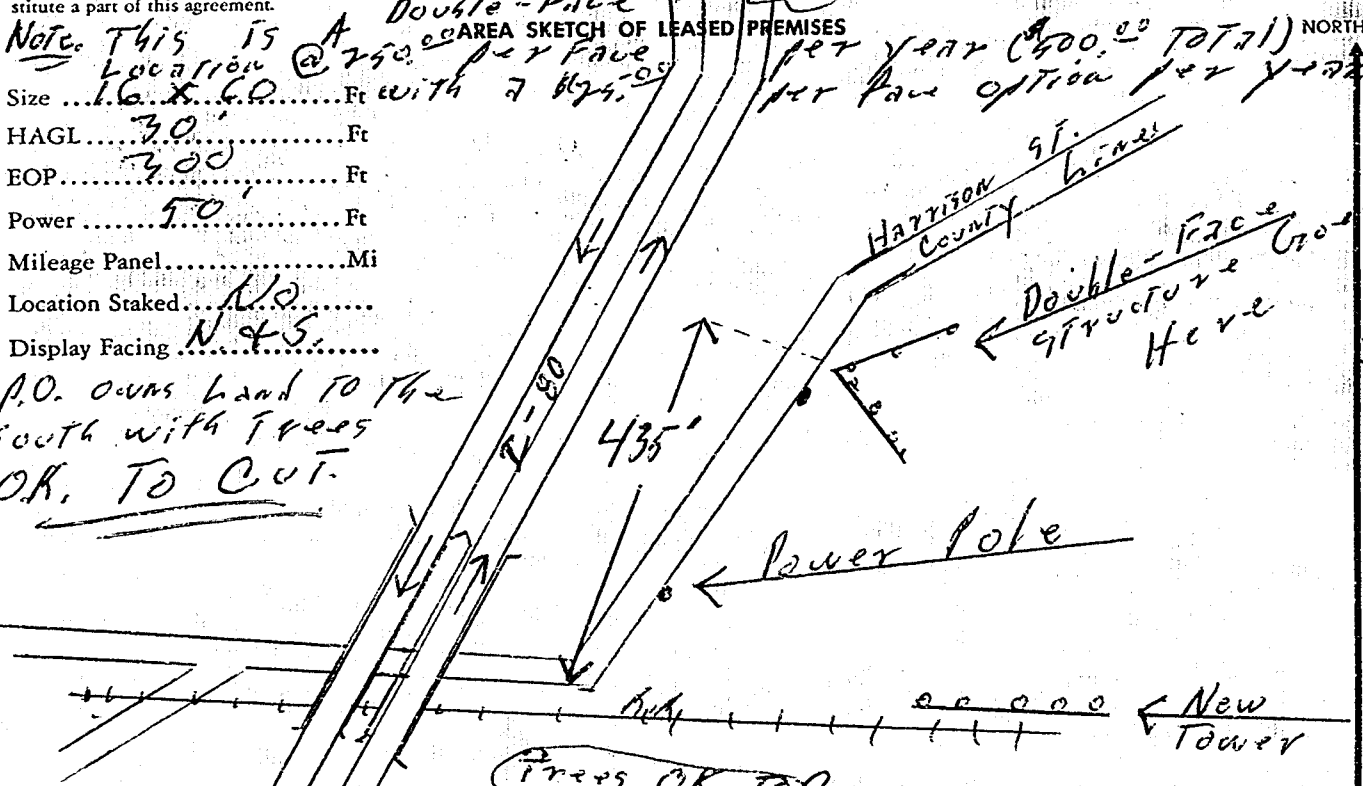 stitute a part of this agreement.
Double-Face
AREA SKETCH OF LEASED PREMISES
NORTH
Note. This is A
Location @ 250.00 per Face per year ($500.00 Total)
with a per face option per year
Size ...16 X 60...Ft
HAGL...30'...Ft
EOP...300'...Ft
Power ...50'...Ft
Mileage Panel...Mi
Location Staked...No...
Display Facing ...N & S....
P.O. owns Land To The
South with Trees
OK. To CUT.
Harrison ST.
County Line
Double-Face
Structure Goe
Here
I-80
435'
Power Pole
R.R.
New
Tower
Trees OK To